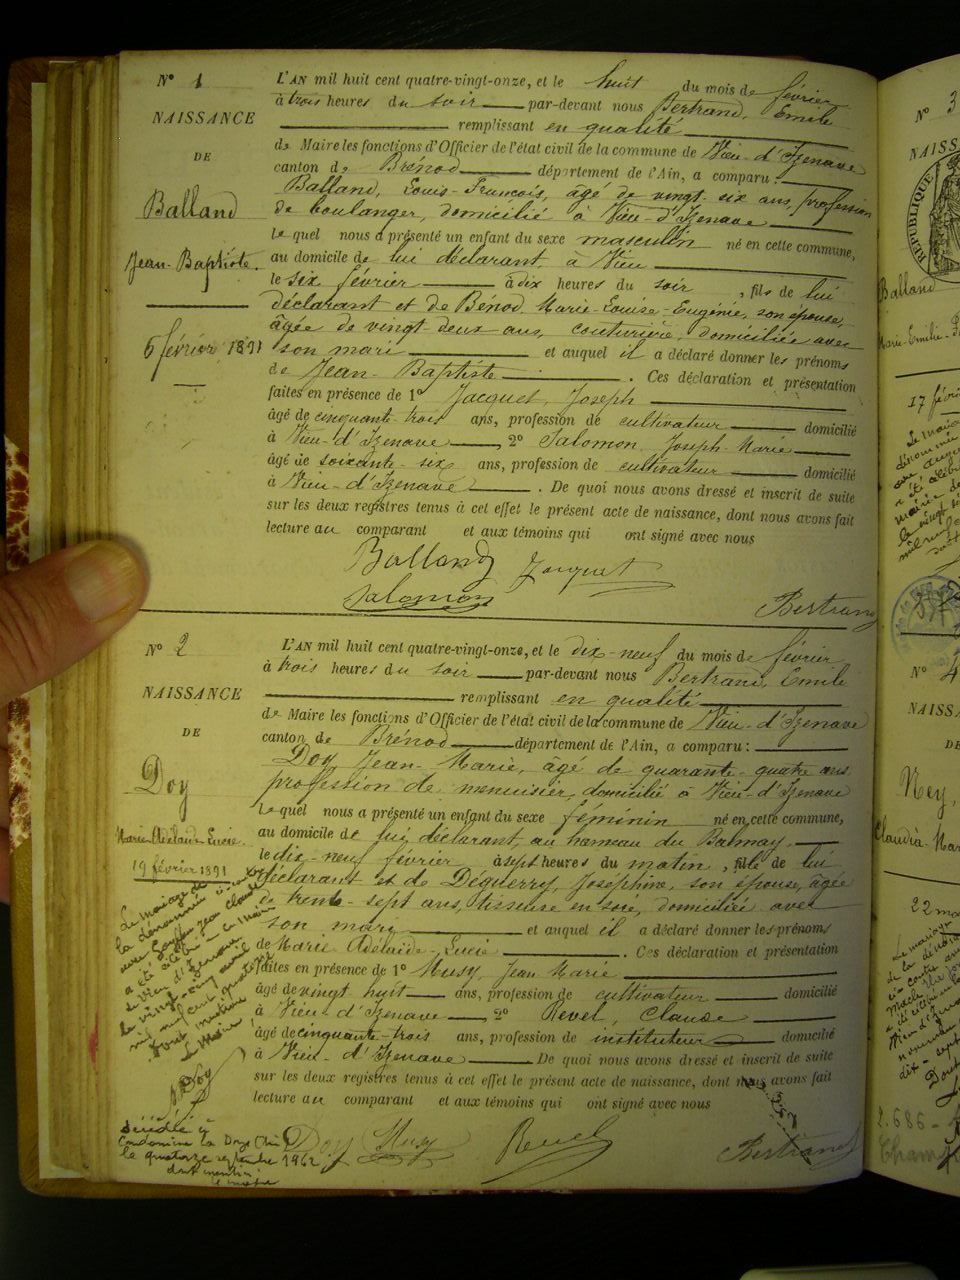 N° 1
NAISSANCE
DE
Balland
Jean-Baptiste.
6 février 1891
L'AN mil huit cent quatre-vingt-onze, et le huit du mois de février
à trois heures du soir par-devant nous Bertrand, Emile
remplissant en qualité
de Maire les fonctions d'Officier de l'état civil de la commune de Vieu-d'Izenave
canton de Brénod département de l'Ain, a comparu :
Balland, Louis-François, âgé de vingt-six ans, profession
de boulanger, domicilié à Vieu-d'Izenave
le quel nous a présenté un enfant du sexe masculin né en cette commune,
au domicile de lui déclarant, à Vieu
le six février à dix heures du soir, fils de lui
déclarant et de Bénod, Marie-Louise-Eugénie, son épouse,
âgée de vingt-deux ans, couturière, domiciliée avec
son mari et auquel il a déclaré donner les prénoms
de Jean-Baptiste. Ces déclaration et présentation
faites en présence de 1° Jacquet, Joseph
âgé de cinquante-trois ans, profession de cultivateur domicilié
à Vieu-d'Izenave, 2° Salomon, Joseph-Marie
âgé de soixante-six ans, profession de cultivateur domicilié
à Vieu-d'Izenave. De quoi nous avons dressé et inscrit de suite
sur les deux registres tenus à cet effet le présent acte de naissance, dont nous avons fait
lecture au comparant et aux témoins qui ont signé avec nous
Balland Jacquet
Salomon Bertrand
N° 2
NAISSANCE
DE
Doy
Marie-Adélaïde-Lucie.
19 février 1891
Le mariage de
la dénommée ci-contre
avec Jean Claude
a été célébré en mairie
de Vieu d'Izenave
le vingt-cinq avril
mil neuf cent quatorze
Dont mention
Le Maire
Doy
Décédée à
Condamine la Doye (Ain)
le quatorze septembre 1962
dont mention
le maire
L'AN mil huit cent quatre-vingt-onze, et le dix-neuf du mois de février
à trois heures du soir par-devant nous Bertrand, Emile
remplissant en qualité
de Maire les fonctions d'Officier de l'état civil de la commune de Vieu-d'Izenave
canton de Brénod département de l'Ain, a comparu :
Doy, Jean-Marie, âgé de quarante-quatre ans
profession de menuisier, domicilié à Vieu-d'Izenave
le quel nous a présenté un enfant du sexe féminin né en cette commune,
au domicile de lui, déclarant, au hameau du Balmay,
le dix-neuf février à sept heures du matin, fille de lui
déclarant et de Déguerry, Joséphine, son épouse, âgée
de trente-sept ans, tisseuse en soie, domiciliée avec
son mari et auquel il a déclaré donner les prénoms
de Marie Adélaïde-Lucie. Ces déclaration et présentation
faites en présence de 1° Musy, Jean-Marie
âgé de vingt-huit ans, profession de cultivateur domicilié
à Vieu-d'Izenave, 2° Revel, Claude
âgé de cinquante-trois ans, profession de instituteur domicilié
à Vieu-d'Izenave De quoi nous avons dressé et inscrit de suite
sur les deux registres tenus à cet effet le présent acte de naissance, dont nous avons fait
lecture au comparant et aux témoins qui ont signé avec nous
Doy Musy Revel Bertrand
N° 3
NAISS
RÉPUBLIQUE
Balland
Marie-Emilie
17 févri
N° 4
NAISSA
DE
Ney,
Claudia-Mar
22 ma